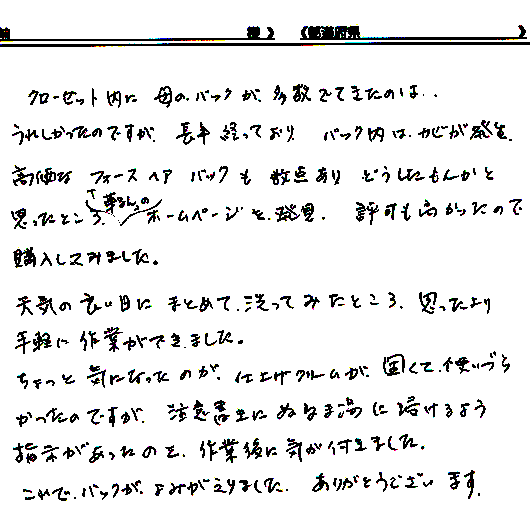 様》 《都道府県 》
クローゼット内に 母の バックが 多数でてきたのは..
うれしかったのですが 長年 経っており バック内は カビが発生.
高価な フォースヘア バックも 数点あり どうしたもんかと
思ったところ、革るんの ホームページを 発見. 評判も高かったので
購入してみました。
天気の良い日に まとめて 洗ってみたところ、思ったより
手軽に 作業ができました。
ちょっと 気になったのが、仕上げクリームが、固くて、使いづら
かったのですが 注意書きに ぬるま湯に 溶けるよう
指示があったのを、作業後に気が付きました.
これで、バックが、よみがえりました. ありがとうございます.